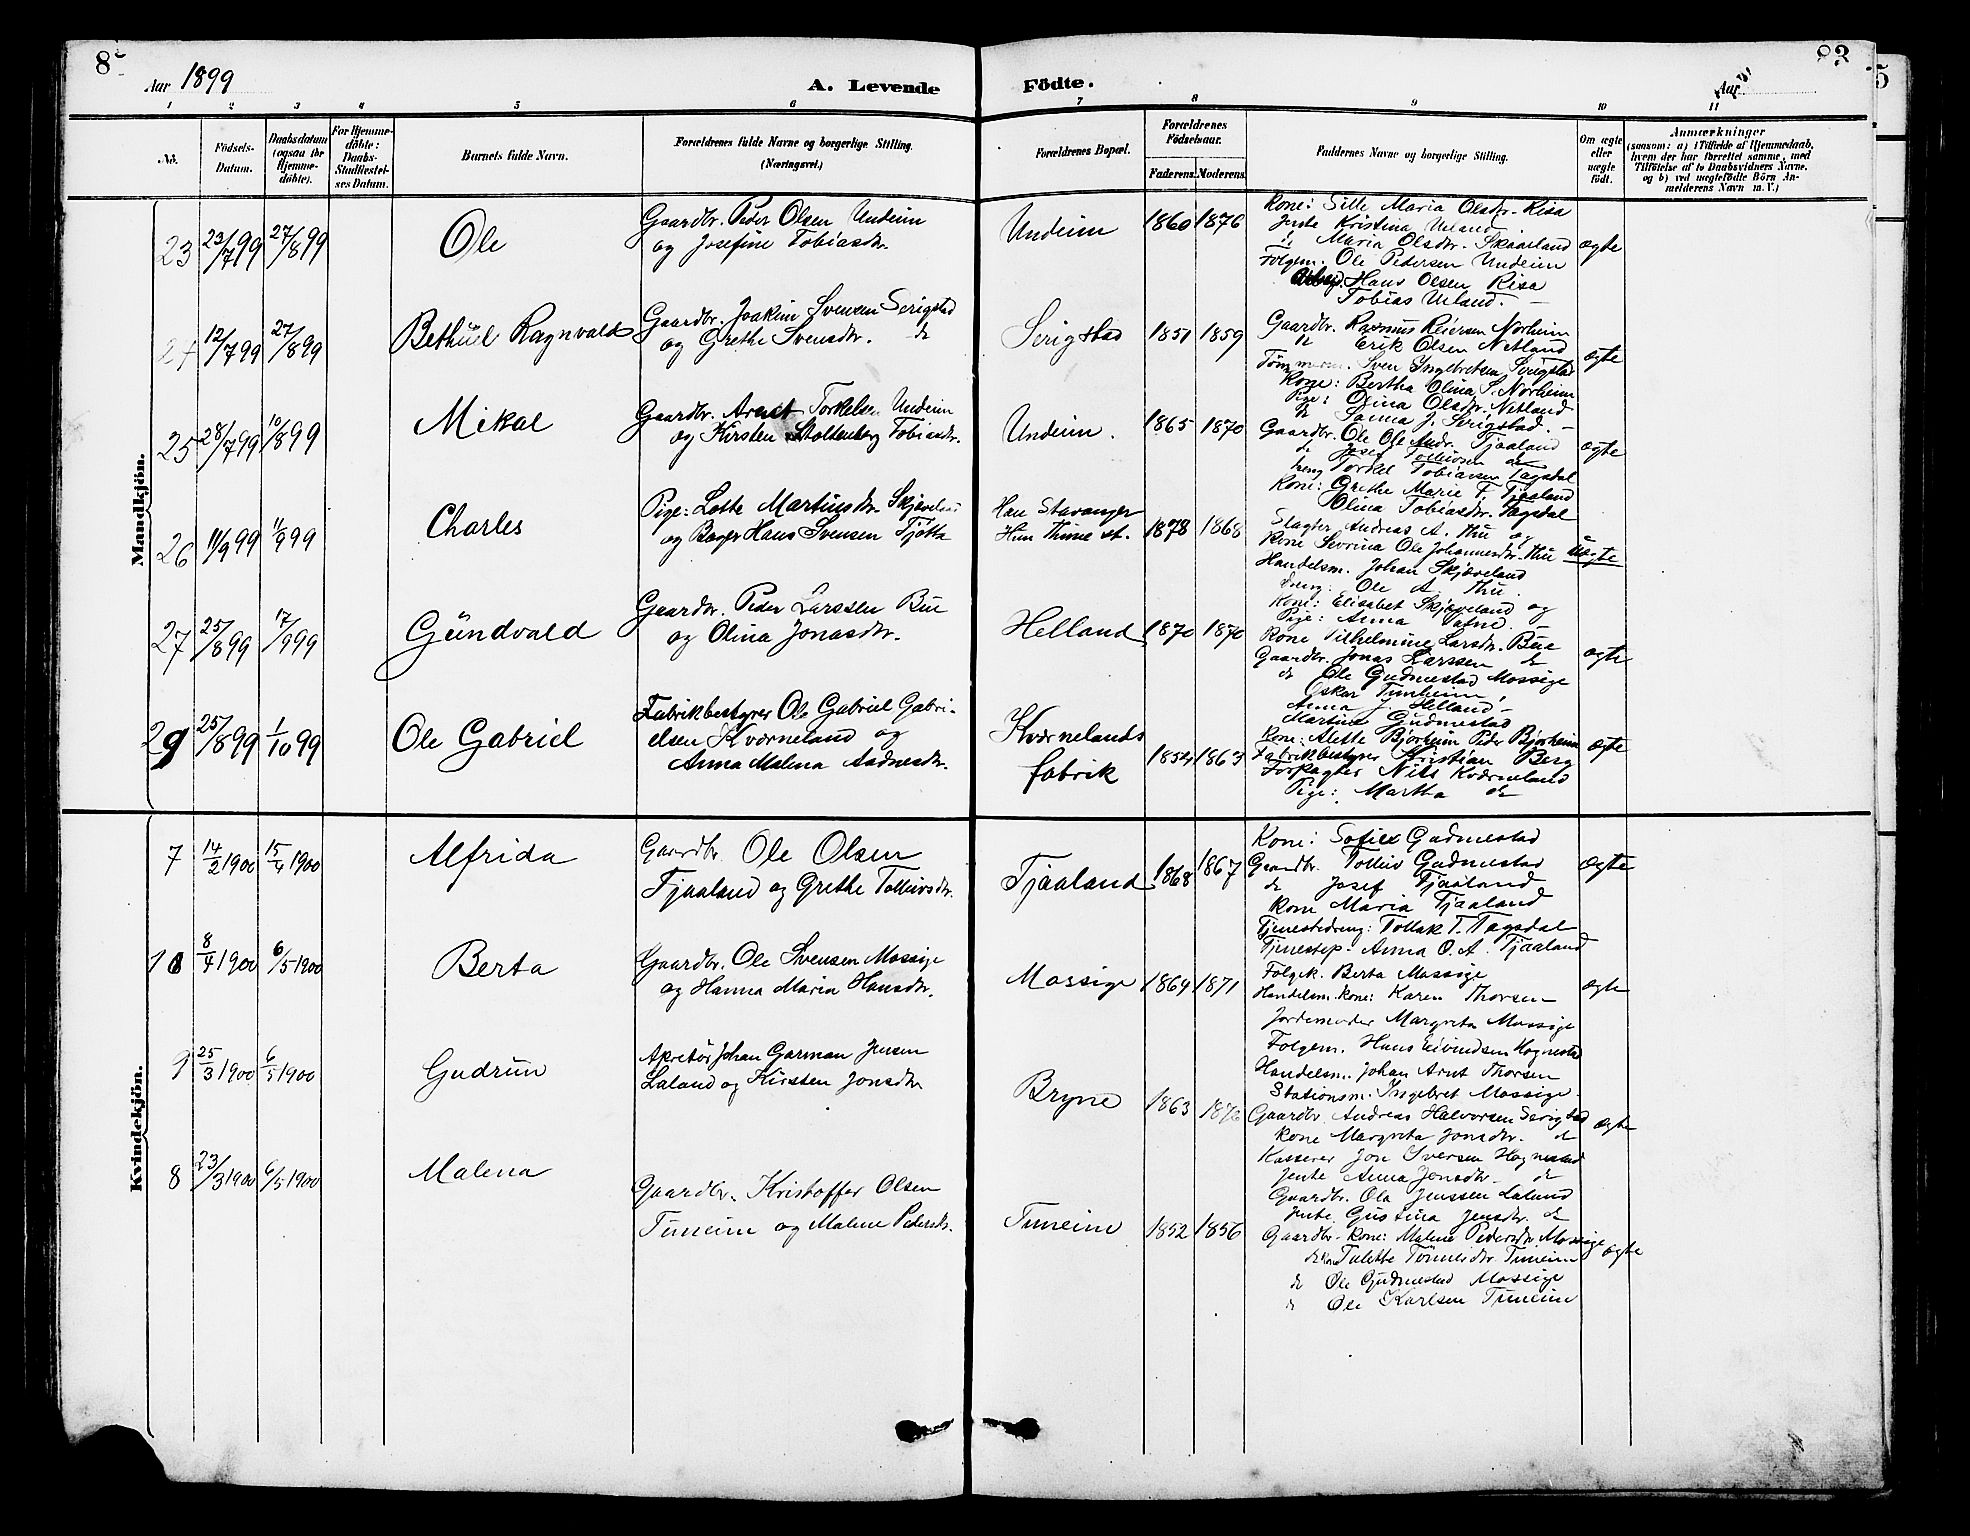 8
83
5
Aar 1899
A. Levende Födte.
Aar
1 2 3 4 5 6 7 8 9 10 11
No.
Födsels-Datum.
Daabsdatum (ogsaa for Hjemme-döbte).
For Hjemme-döbte: Daabs-Stadfæstel-ses Datum.
Barnets fulde Navn.
Forældrenes fulde Navne og borgerlige Stilling. (Næringsvei.)
Forældrenes Bopæl.
Forældrenes Födselsaar.
Faderens. Moderens.
Faddernes Navne og borgerlige Stilling.
Om ægte eller uægte födt.
Anmærkninger
(saasom: a) i Tilfælde af Hjemmedaab,
hvem der har forrettet samme, med
Tilföielse af to Daabsvidners Navne,
og b) ved uægtefödte Börn An-
melderens Navn m. V.)
Mandkjön.
23 23/7 99 27/8 99 Ole
Gaardbr. Peder Olsen Undeim
og Josefine Tobiasdtr.
Undeim 1860 1876
Kone: Sille Maria Olsdtr. Risa
Jente Kristina Urland
do Maria Olsdtr. Skaarland
Folgem. Ole Pedersen Undeim
Hans Olsen Risa
Tobias Urland.
ægte
24 12/7 99 27/8 99 Bethuel Ragnvald
Gaardbr. Joakim Svensen Serigstad
og Grethe Svensdtr. do
Serigstad 1851 1859
Gaardbr. Rasmus Reiersen Norheim
do Erik Olsen Netland
Tømmerm. Sven Ingebretsen Serigstad
Kone: Bertha Olina S. Norheim
Pige: Olina Olsdtr. Netland
do Sanna J. Serigstad.
ægte
25 28/7 99 10/8 99 Mikal
Gaardbr. Arnt Torkelsen Undeim
og Kirsten Stoltenberg Tobiasdtr.
Undeim. 1865 1870
Gaardbr. Ole Ole Andr. Tjaaland
do Josef Tollivsen do
Dreng Torkel Tobiassen Tagsdal
Kone: Grethe Marie T. Tjaaland
Olina Tobiasdtr. Tagsdal
ægte
26 11/9 99 11/9 99 Charles
Pige: Lotte Martinsdtr. Skjæveland
og Bager Hans Svensen Tjøtta
Han Stavanger
Hun Thime st. 1878 1868
Slagter Andreas A. Thu og
Kone Severina Ole Johannesdtr. Thu
Handelsm. Johan Skjæveland
Dreng: Ole A. Thu.
Kone: Elisabet Skjæveland og
Pige: Anna
Uægte
27 25/8 99 17/9 99 Gündvald
Gaardbr. Peder Larssen Bue
og Olina Jonasdtr.
Helland 1870 1870
Kone Vilhelmine Larsdtr. Bue
Gaardbr. Jonas Larssen do
do Ole Gudmestad Mossige
Oskar Tunheim,
Anna J. Helland
Martin Gudmestad
ægte
29 25/8 99 1/10 99 Ole Gabriel
Fabrikbestyrer Ole Gabriel Gabri-
elsen Kværneland og
Anna Malena Aadnesdtr.
Kværnelands
fabrik 1854 1863
Kone: Alette Bjorheim Peder Bjorheim
Fabrikbestyrer Kristian Berg
Forpagter Nils Kværneland
Pige: Martha do
ægte
Kvindekjön.
7 14/2 1900 15/4 1900 Alfrida
Gaardbr. Ole Olsen
Tjaaland og Grethe Tollivsdtr.
Tjaaland 1868 1867
Kone: Sofie Gudmestad
Gaardbr. Tolliv Gudmestad
do Josef Tjaaland
Kone Maria Tjaaland
Tjenestedreng: Tollak T. Tagsdal
Tjenestep. Anna O. A. Tjaaland
ægte
10 8/4 1900 6/5 1900 Berta
Gaardbr. Ole Svensen Mossige
og Hanna Maria Hansdtr.
Mossige 1864 1871
Folgek. Berta Mossige
Handelsm. kone: Karen Thorsen
Jordemoder Margreta Mossige
Folgem. Hans Eivindsen Hognestad
Handelsm. Johan Arnt Thorsen
Stationsm. Ingebret Mossige
ægte
9 25/3 1900 6/5 1900 Gudrün
Apretör Johan Garman Jensen
Laland og Kirsten Jonsdtr
Bryne 1863 1872
Gaardbr. Andreas Halvorsen Serigstad
Kone Margreta Jonsdtr. do
Kasserer Jon Iversen Hognestad
Jente Anna Jonsdtr. do
Gaardbr. Ola Jenssen Laland
Jente Gustina Jensdtr. do
ægte
8 23/3 1900 6/5 1900 Malena
Gaardbr. Kristoffer Olsen
Tuneim og Malene Pedersdtr.
Tuneim 1852 1856
Gaardbr. kone: Malene Pedersdtr. Mossige
do kone Talette Tönnesdtr Tuneim
do Ole Gudmestad Mossige
do Ole Karlsen Tuneim
ægte